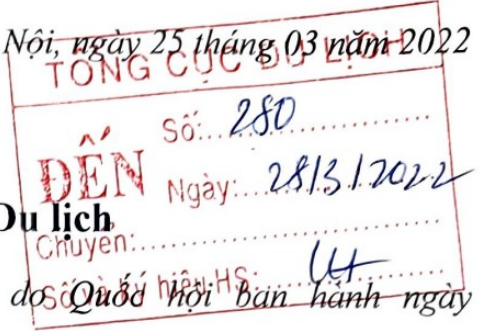 Nội, ngày 25 tháng 03 năm 2022
TỔNG CỤC DU LỊCH
Số: 280
ĐẾN
Ngày: 28/3/2022
Du lịch
Chuyển:
Số và ký hiệu HS:
do Quốc hội ban hành ngày